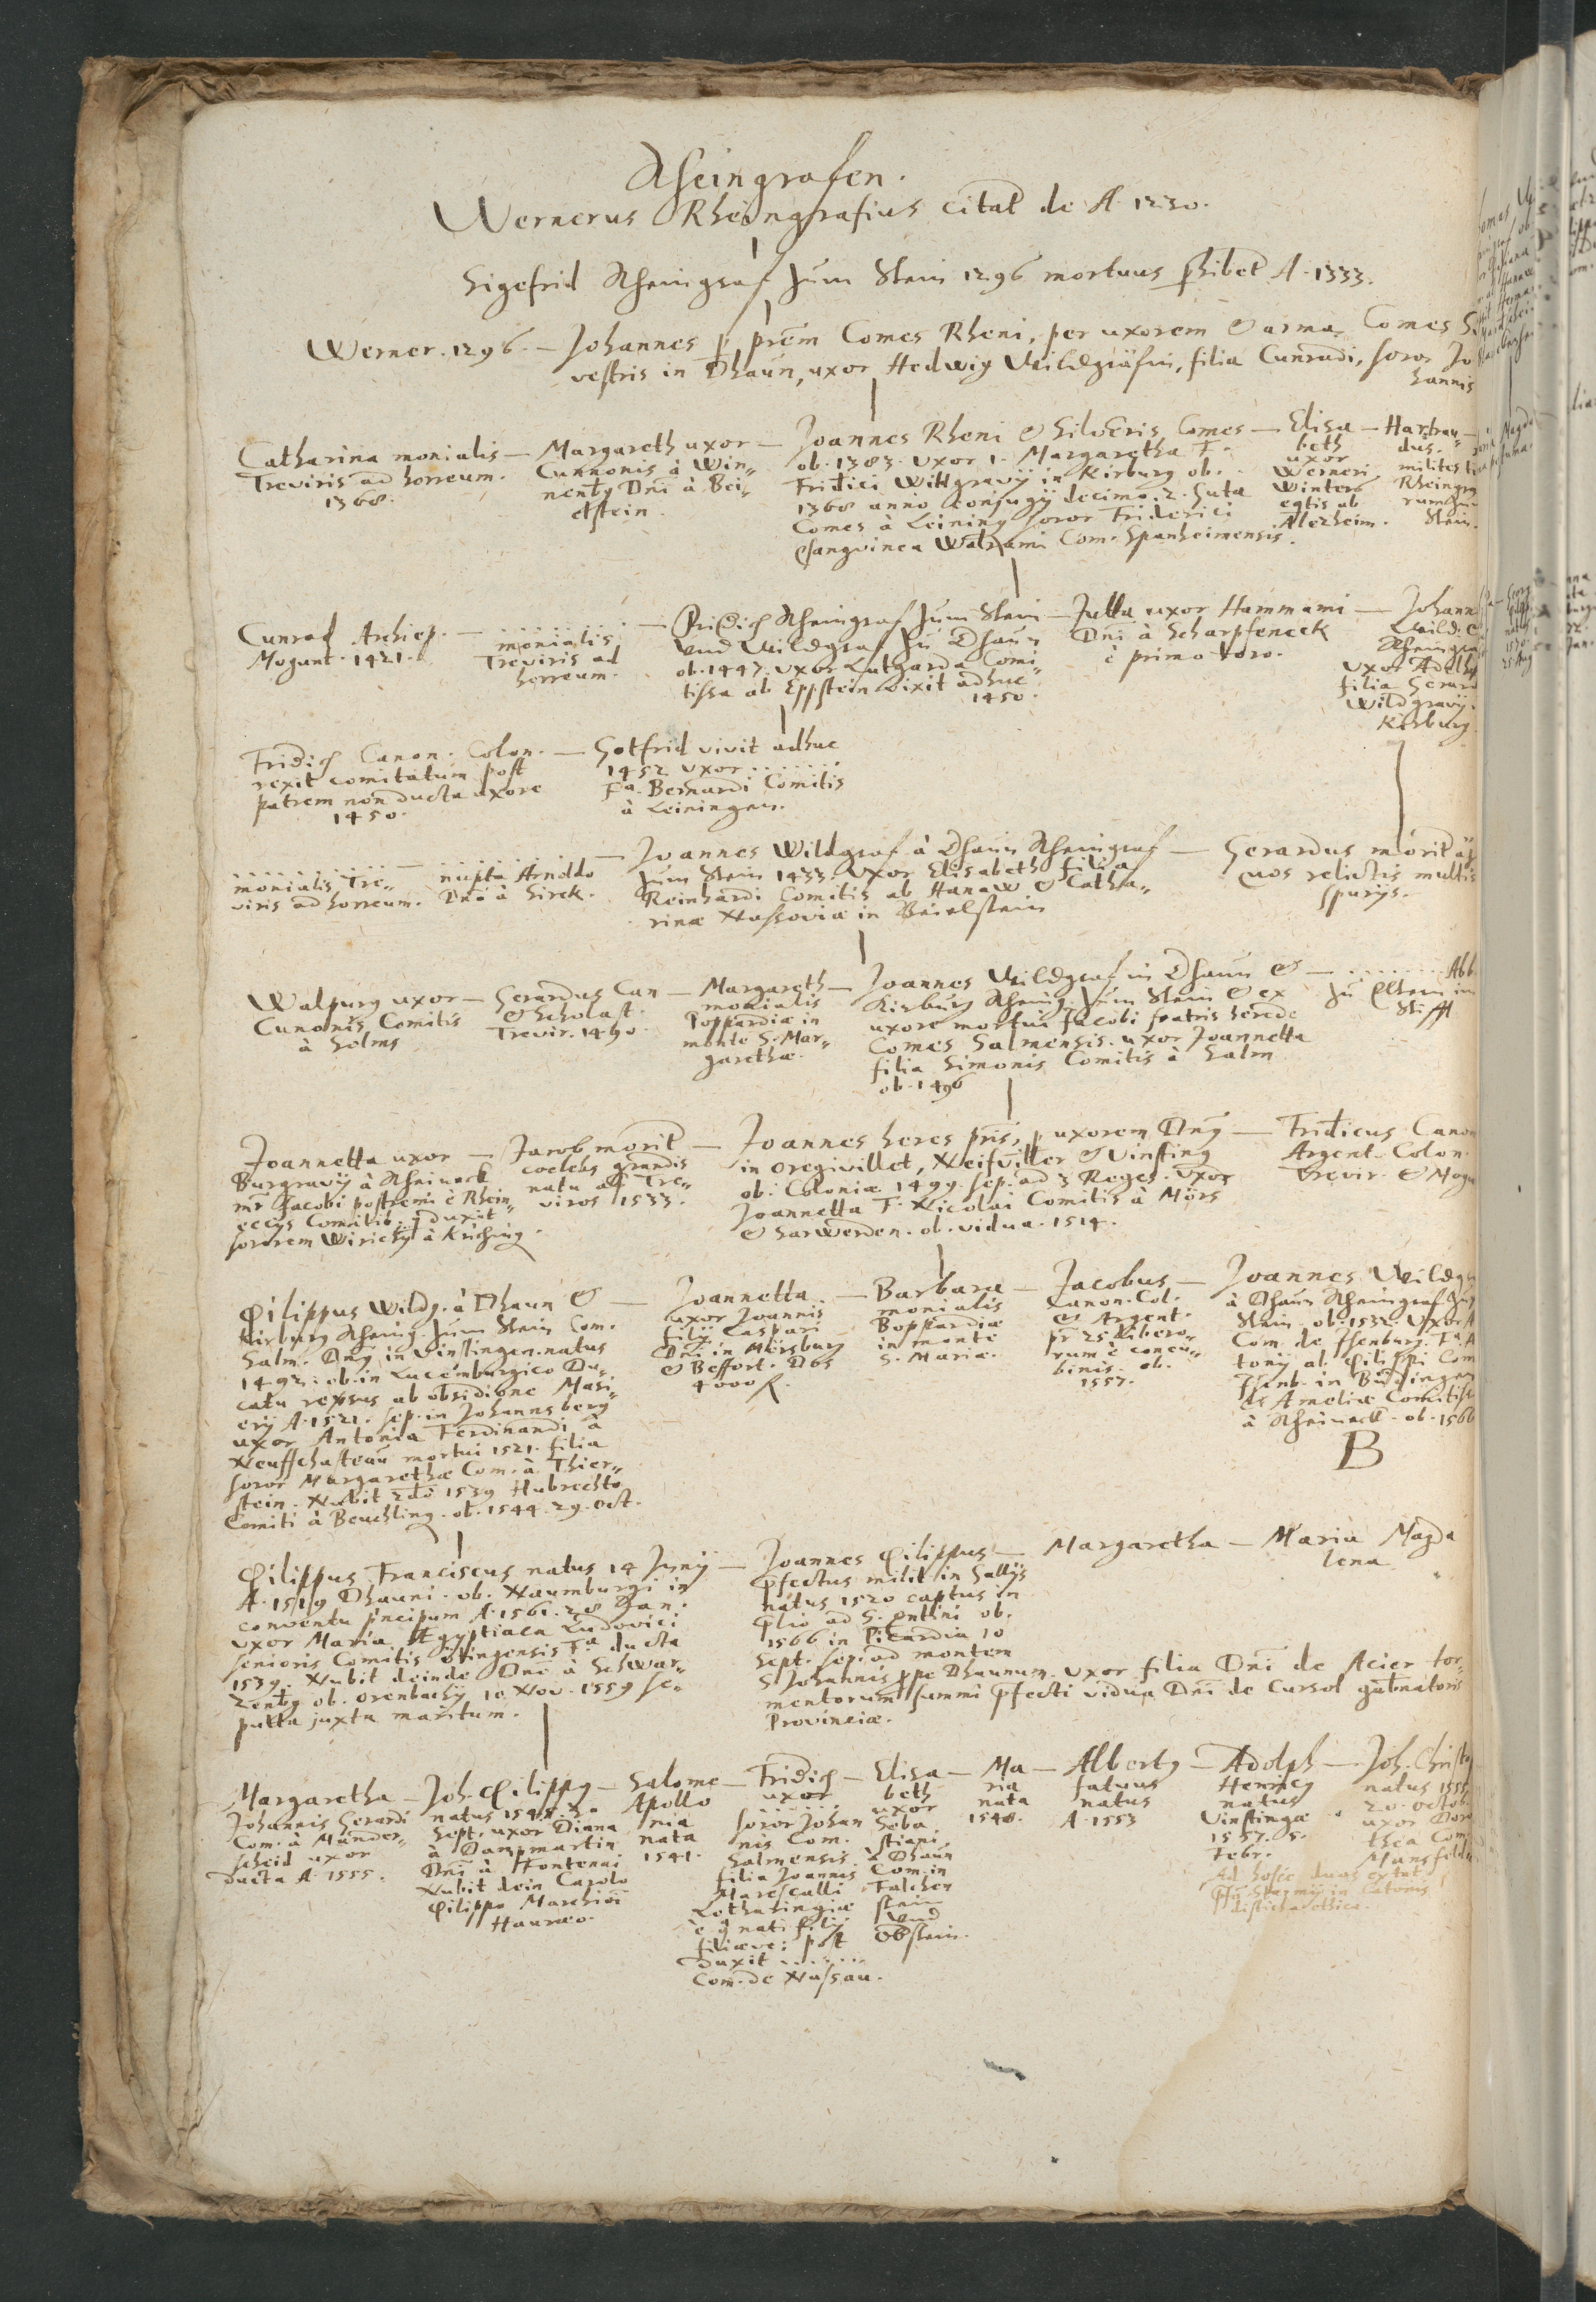 Rheingrafen.
Wernerus Rheingrafius citat de A. 1230.
Sigefrid Rheingraf zum Stein 1296 mortuus A. 1333.
Werner. 1296. — Johannes p prem Comes Rheni, per uxorem & arma Comes
vestris in Dhaun, uxor Hedwig Wildgräfin, filia Cunradi, soror Jo
hannis
Catharina monialis —
Treviris ad horreum.
1368.
Margareth uxor —
Cunnonis à Win„
nenbg Dni à Bei„
elstein.
Joannes Rheni & Silvēris Comes —
ob. 1383. uxor 1. Margaretha F.
Fridici Wildgravij in Kirburg ob.
1368 anno conjugij decimo. 2. Juta
Comes à Leining soror Friderici
Walrami Com. Spanheimensis.
Elisa —
beth
uxor
Werneri
Winter
ab
Alezheim.
Hartran„
dus.
milites
Rheingra
rum zum
Stein.
Cunrad Archiep. —
Mogunt. 1421.
. . . . . . . —
monialis
Treviris ad
horreum.
Fridich Rheingraf zum Stein —
und Wildgraf zu Dhaun
ob. 1447. uxor Lutgarda Comi„
tissa ab Eppstein vixit adhuc
1450.
Jutta uxor Hammanni —
Dni à Scharpfeneck
è primo toro.
Johann
Wild. &
Rheingra
uxor Adelh
filia Gerard
Wildgravij
Kirburg
Fridich Canon. Colon. —
rexit comitatum post
patrem non ducta uxore
1450.
Gotfrid vivit adhuc
1452 uxor . . . . . . .
Fa. Bernardi Comitis
à Leiningen.
. . . . . . . —
monialis Tre„
viris ad horreum.
. . . . . . . —
nupta Arnoldo
Dno à Sirck.
Joannes Wildgraf à Dhaun Rheingraf —
zum Stein 1433. uxor Elisabeth filia
Reinhardi Comitis ab Hanaw & Catha„
rinæ Nassoviæ in Beielstein
Gerardus morit
relictis multis
spurijs.
Walpurg uxor —
Cunonis Comitis
à Solms
Gerardus Can —
& Scholast.
Trevir. 1490.
Margareth —
monialis
Poppardiæ in
monte S. Mar„
garethæ.
Joannes Wildgraf in Dhaun & —
Kirburg Rheing. zum Stein & ex
uxore mortui Jacobi fratris herede
Comes Salmensis. uxor Joannetta
filia Simonis Comitis à Salm
ob. 1496
. . . . . . . Abb.
zu Eltern im
Stifft
Joannetta uxor —
Burgravij à Rheineck
mr Jacobi postremi è Rhein„
eccijs Comitib. q duxit
sororem Wirichij à Kriching.
Jacob morit —
coelebs grandis
natu ad Tre„
viros 1533.
Joannes heres pris, p uxorem Dng —
in oregivillet, Neifviller & Vinsting
ob. Coloniæ 1499. sep. ad 3 Reges. uxor
Joannetta F. Nicolai Comitis à Mörs
& Sarwerden. ob. vidua. 1514.
Fridicus Canon
Argent. Colon.
Trevir. & Mogu
Philippus Wildg. à Dhaun & —
Kirburg Rheing. zum Stein Com.
Salm. Dng in Vinstingen. natus
1492: ob. in Lucemburgico Du„
catu repsus ab obsidione Masi„
erij A. 1521. sep. in Johannsberg
uxor Antonia Ferdinandi à
Neuffchasteau mortui 1521. filia
soror Margarethæ Com. à Thier„
stein. Nubit 2do 1539 Hubrechto
Comiti à Beuchling. ob. 1544. 29. Oct.
Joannetta —
uxor Joannis
filij Caspari
Dni in Mersburg
& Beffort. Dos
4000 fl.
Barbara —
monialis
Boppardiæ
in monte
S. Mariæ.
Jacobus —
Canon. Col.
& Argent.
pr 25 libero„
rum è concu„
binis. ob.
1557.
Joannes Wildgra
à Dhaun Rheingraf zum
Stein. ob. 1532. uxor A
Com. de Isenburg. Fa. A
tonij al. Philippi Com
Isenb. in Büdingen
& Ameliæ Comitiss
à Rheineck. ob. 1566
B
Philippus Franciscus natus 14 Junij —
A. 1519 Dhauni. ob. Naumburgi in
conventu pncipum A. 1561. 28 Jan.
uxor Maria Ægyptiaca Ludovici
senioris Comitis ötingensis Fa ducta
1539. Nubit deinde Dno à Schwar„
zenbg ob. orenbachij 10 Nov. 1559 se„
pulta juxta maritum.
Joannes Philippus —
pfectus milit in Gallijs
natus 1520 captus in
plio ad S. Qntini ob.
1566 in Picardia 10
Sept. sep. ad montem
S. Johannis ppe Dhaunum. uxor filia Dni de Acier tor„
mentorum summi pfecti vidua Dni de Cursol gubnatoris
Provinciæ.
Margaretha —
Maria Magda
lena
Margaretha —
Johannis Gerardi
Com. à Mander„
scheid uxor
ducta A. 1555.
Joh. Philippg —
natus 1545. 30
Sept. uxor Diana
à Dampmartin
Dni à Fontenni
Nubit dein Carolo
Philippo Marchioni
Hauræo.
Salome —
Apollo
nia
nata
1541.
Fridich —
uxor
. . . . . . .
soror Johan
nis Com.
Salmensis &
filia Joannis
Marescalli
Lotharingiæ
è q nati filij
filiæve: post
duxit . . . . . . .
Com. de Nassau.
Elisa —
beth
uxor
Seba
stiani
à Dhaun
Com. in
Falcken
stein
und
Obstein.
Ma —
ria
nata
1548.
Albertg —
fatuus
natus
A. 1553
Adolph —
Henricg
natus
Vinstingæ
1557. 5.
Febr.
Joh. Christo
natus 1555
20. octob.
uxor Doro
thea Com.
Mansfeldi
Ad hosce duos extat
in Catonis
disticha ethica.